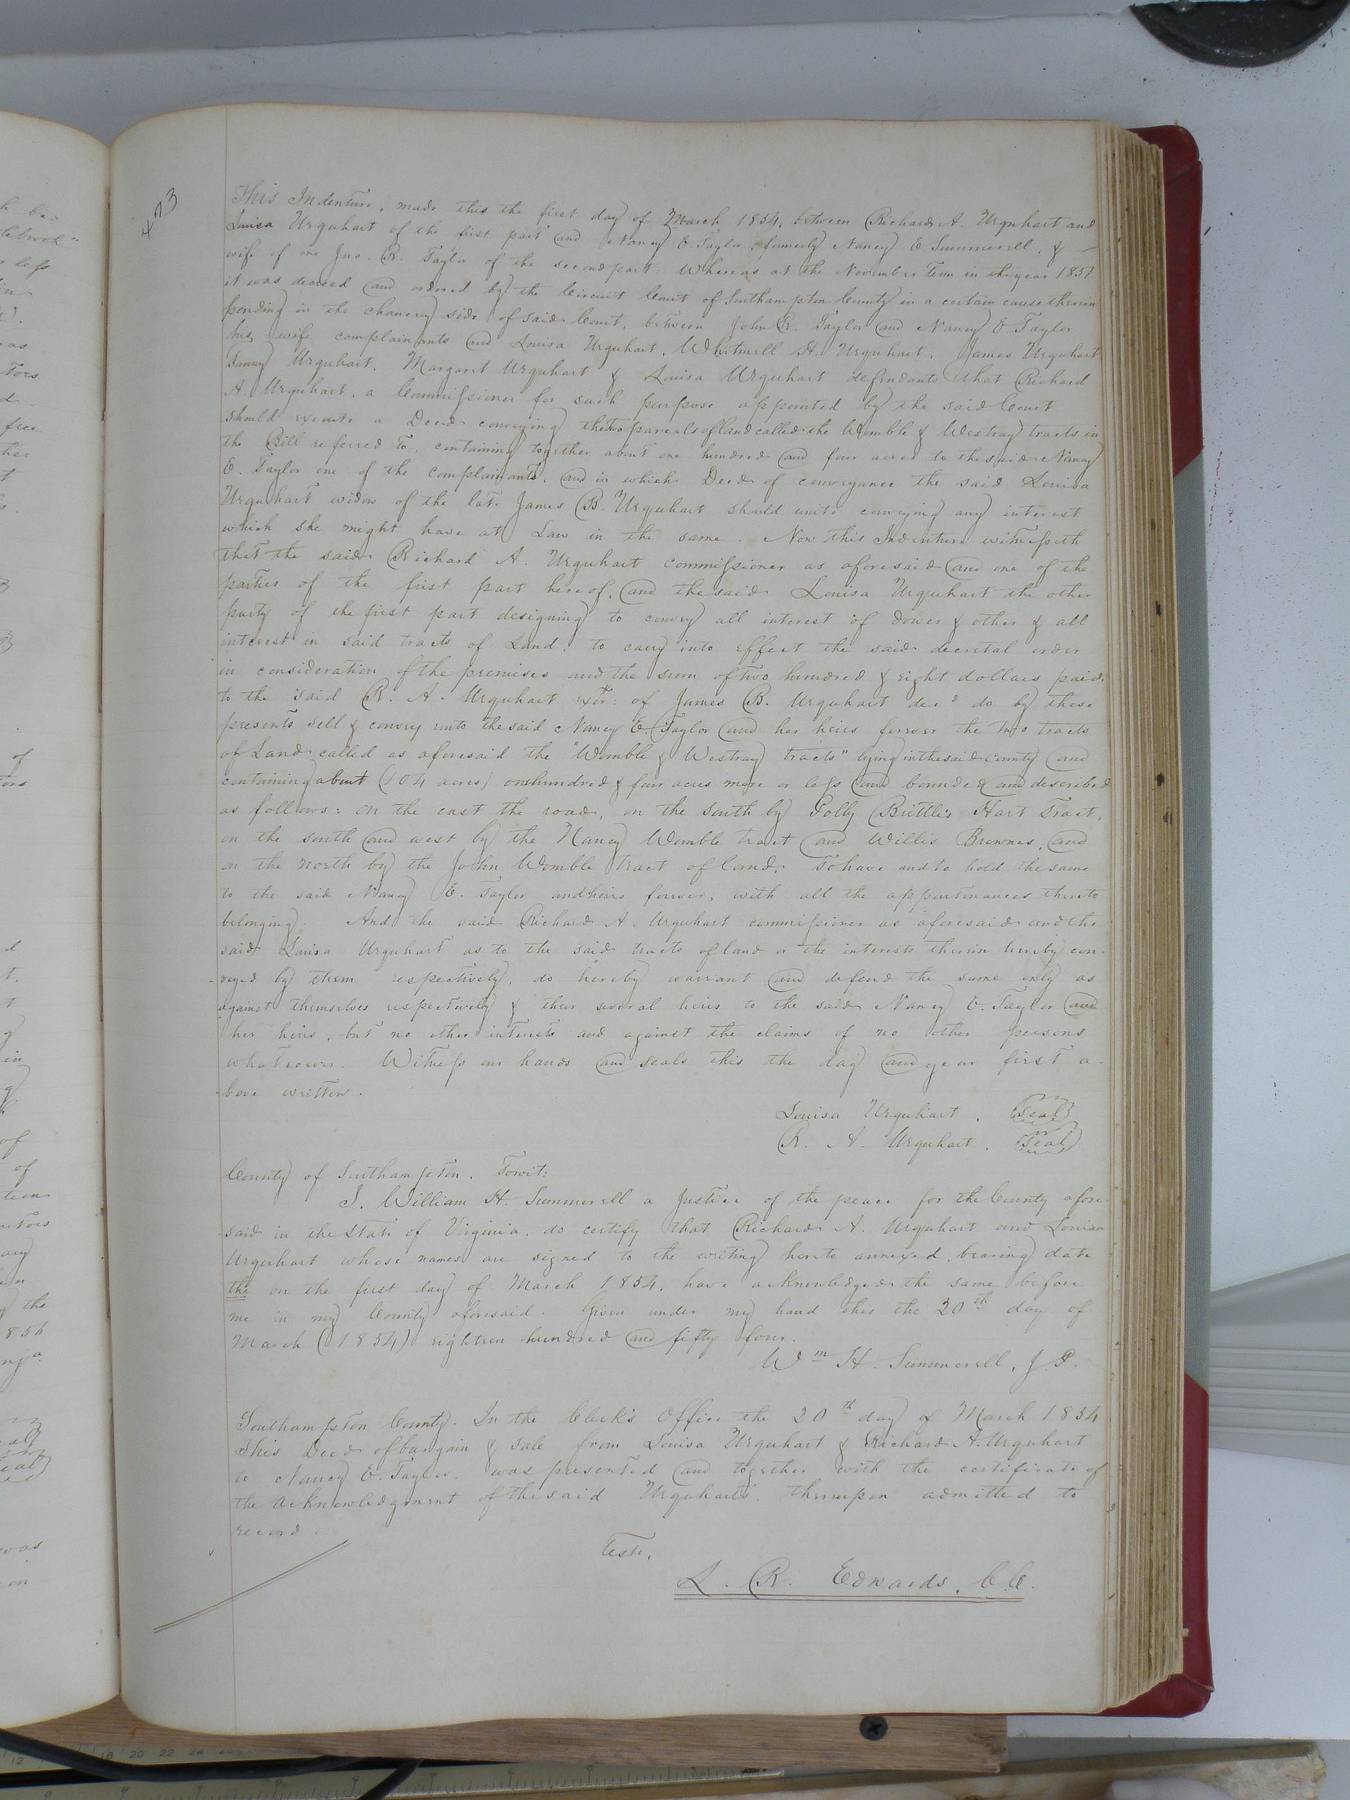 473
This Indenture, made this the first day of March 1854, between Richard A. Urquhart and
Louisa Urquhart of the first part and Nancy E Taylor formerly Nancy E Summerell, &
wife of one Jno. R. Taylor of the second part. Whereas at the November Term in the year 1851
it was decreed and ordered by the Circuit Court of Southampton County in a certain cause therein
pending in the chancery side of said Court, between John R. Taylor and Nancy E Taylor
his wife complainants and Louisa Urquhart, Whitmell H. Urquhart, James Urquhart
Fanny Urquhart, Margaret Urquhart & Louisa Urquhart defendants that Richard
A Urquhart, a Commissioner for such purpose appointed by the said Court
should execute a Deed conveying the two parcels of land called the Womble & Westray tracts in
the Bill referred to, containing together about one hundred and four acres to the said Nancy
E. Taylor one of the complainants, and in which Deed of conveyance the said Louisa
Urquhart widow of the late James B. Urquhart should unite conveying any interest
which she might have at Law in the same. Now this Indenture witnesseth
that the said Richard A. Urquhart commissioner as aforesaid and one of the
parties of the first part hereof, and the said Louisa Urquhart the other
party of the first part designing to convey all interest of dower & other & all
interest in said tracts of Land, to carry into effect the said decretal order
in consideration of the premises and the sum of two hundred & eight dollars paid
to the said R. A. Urquhart exor: of James B. Urquhart decd do by these
presents sell & convey unto the said Nancy E Taylor and her heirs forever the two tracts
of Land called as aforesaid the "Womble & Westray tracts" lying in the said county and
containing about (104 acres) one hundred & four acres more or less and bounded and described
as follows: on the east the road, on the south by Polly Brittle's Hart Tract,
on the south and west by the Nancy Womble tract and Willis Brownes, and
on the north by the John Womble tract of land. To have and to hold the same
to the said Nancy E. Taylor and heirs forever, with all the appurtenances thereto
belonging. And the said Richard A. Urquhart commissioner as aforesaid and the
said Louisa Urquhart as to the said tracts of land or the interests therein hereby con-
veyed by them respectively, do hereby warrant and defend the same only as
against themselves respectively & their several heirs to the said Nancy E. Taylor and
her heirs, but no other interests and against the claims of no other persons
whatsoever. Witness our hands and seals this the day and year first a-
bove written.
Louisa Urquhart. Seal
R. A. Urquhart. Seal
County of Southampton. Towit:
I, William H. Summerell a Justice of the peace for the County afore-
said in the State of Virginia, do certify that Richard A. Urquhart and Louisa
Urquhart whose names are signed to the writing hereto annexed, bearing date
the on the first day of March 1854, have acknowledged the same before
me in my County aforesaid. Given under my hand this the 20th day of
March (1854) eighteen hundred and fifty four.
Wm H. Summerell, J. P.
Southampton County. In the Clerk's Office the 20th day of March 1854
This Deed of bargain & sale from Louisa Urquhart & Richard A. Urquhart
to Nancy E. Taylor was presented and together with the certificate of
the acknowledgment of the said Urquharts thereupon admitted to
record.
Teste,
L. R. Edwards, C.C.